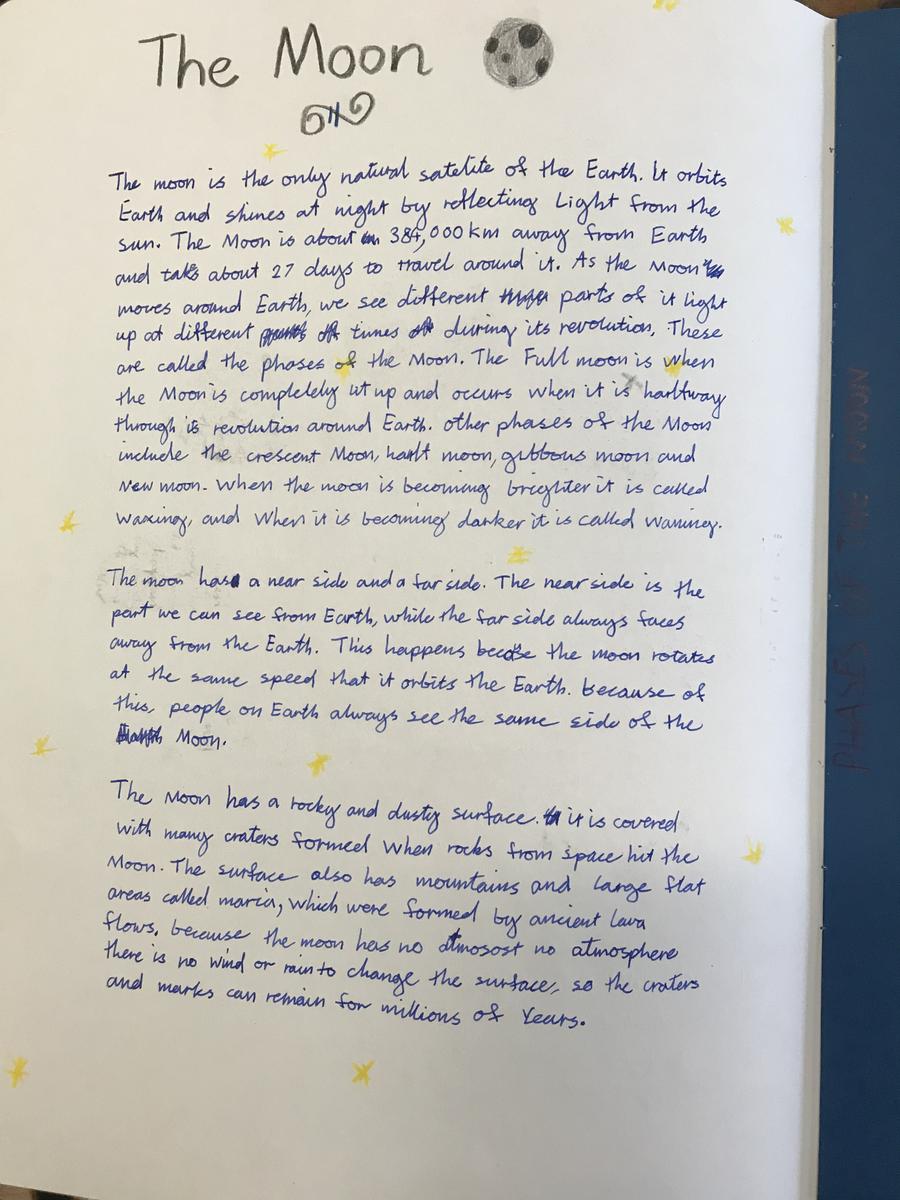 The Moon
The moon is the only natural satelite of the Earth. It orbits
Earth and shines at night by reflecting Light from the
sun. The Moon is about 384,000 km away from Earth
and takes about 27 days to travel around it. As the Moon
moves around Earth, we see different parts of it light
up at different times during its revolution, These
are called the phases of the Moon. The Full moon is when
the Moon is completely lit up and occurs when it is halfway
through is revolution around Earth. other phases of the Moon
include the crescent Moon, half moon, gibbous moon and
New moon. When the moon is becoming brighter it is called
waxing, and When it is becoming darker it is called waning.
The moon has a near side and a far side. The near side is the
part we can see from Earth, while the far side always faces
away from the Earth. This happens the moon rotates
at the same speed that it orbits the Earth. because of
this, people on Earth always see the same side of the
Moon.
The Moon has a rocky and dusty surface. it is covered
with many craters formed When rocks from space hit the
Moon. The surface also has mountains and large flat
areas called maria, which were formed by ancient Lava
flows. because the moon has no no atmosphere
there is no wind or rain to change the surface, so the craters
and marks can remain for millions of Years.
PHASES OF THE MOON